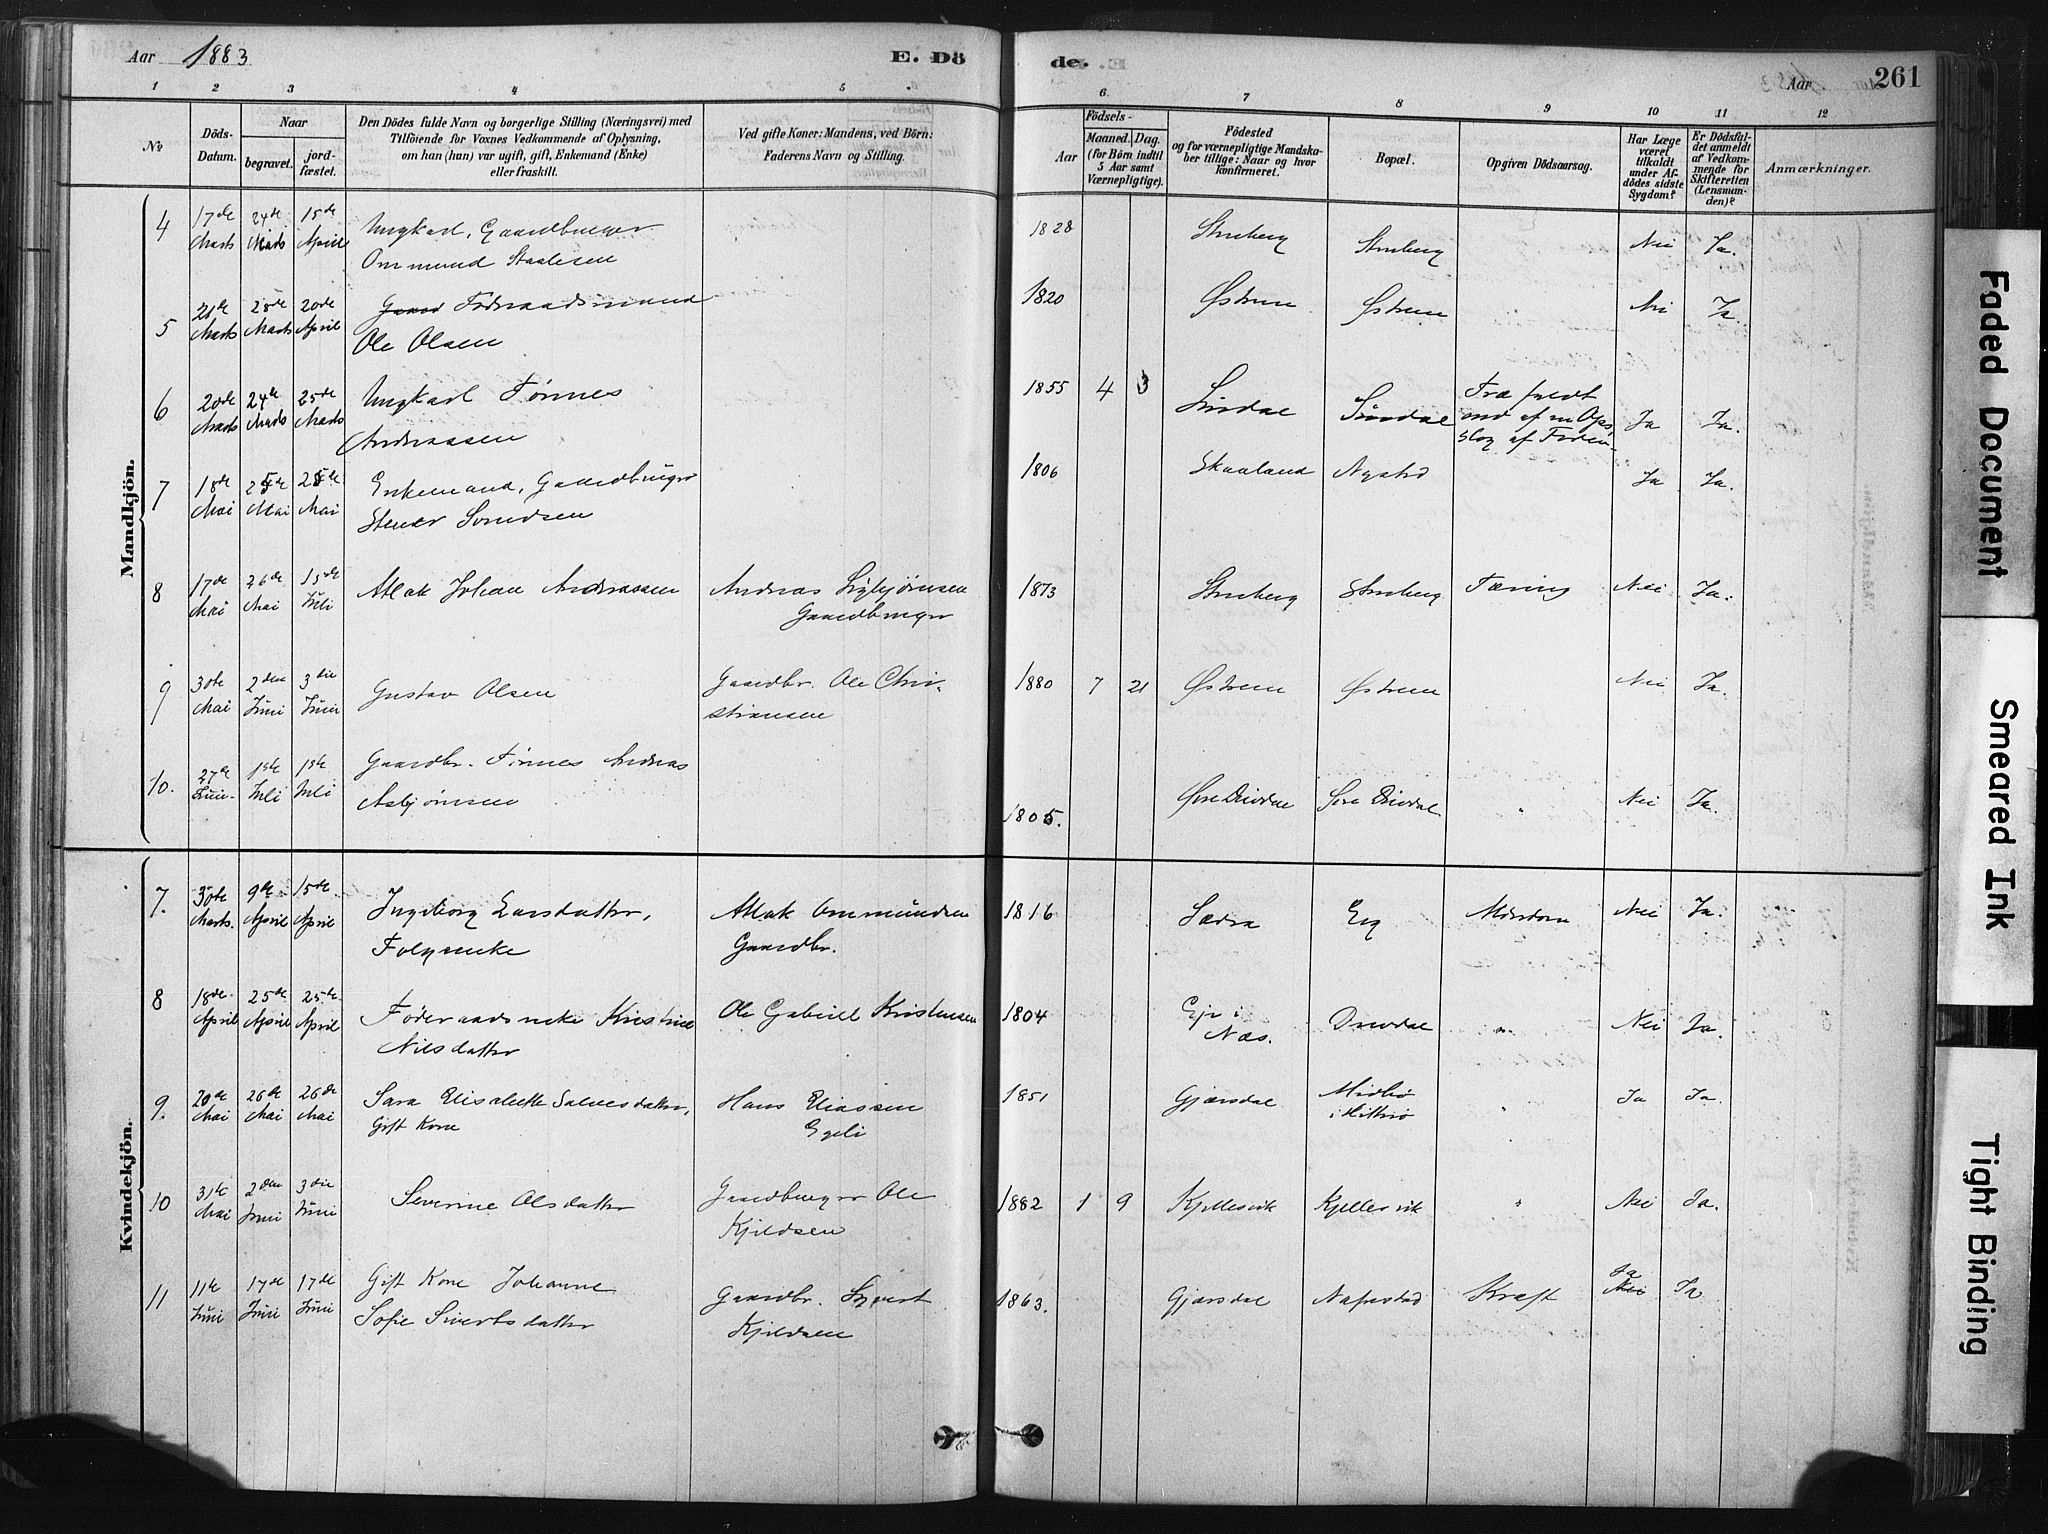 Aar 1883
E. Dö
de.
Aar
261
1 2 3 4 5
6 7 8 9 10 11 12
No
Döds-Datum.
Naar
begravet.
jord-fæstet.
Den Dödes fulde Navn og borgerlige Stilling (Næringsvei) med
Tilföiende for Voxnes Vedkommende af Oplysning,
om han (hun) var ugift, gift, Enkemand (Enke)
eller fraskilt.
Ved gifte Koner: Mandens, ved Börn:
Faderens Navn og Stilling.
Födsels-
Aar
Maaned. Dag.
(for Börn indtil
5 Aar samt
Værnepligtige).
Födested
og for værnepligtige Mandska-
ber tillige: Naar og hvor
konfirmeret.
Bopæl.
Opgiven Dödsaarsag.
Har Læge
været
tilkaldt
under Af-
dödes sidste
Sygdom?
Er Dödsfal-
det anmeldt
af Vedkom-
mende for
Skifteretten
(Lensman-
den)?
Anmærkninger.
Mandkjön.
4 17de Marts 24de Marts 15de April Ungkarl, Gaardbruger
Ommund Staalesen
1828 Nei Ja.
5 21de Marts 28de Marts 20de April Gaard Föderaadsmand
Ole Olsen
1820 Østrem Østrem Nei Ja.
6 20de Marts 24de Marts 25de Marts Ungkarl Tönnes
Andreassen
1855 4 3 Sirdal Sirdal Ja Ja.
7 18de Mai 25de Mai 25de Mai Enkemand, Gaardbruger
1806 Skaaland Ja Ja.
8 17de Mai 26de Mai 15de Juli Atlak Johan Andreassen
Andreas Sigbjørnsen
Gaardbruger
1873 Tæring Nei Ja.
9 30te Mai 2den Juni 3die Juni Gustav Olsen
Gaardbr. Ole Chri-
stiansen
1880 7 21 Østrem Østrem Nei Ja.
10. 27de Juni 1ste Juli 1ste Juli Gaardbr. Tönnes Andreas
Asbjörnsen
1805. " Nei Ja.
Kvindekjön.
7. 30te Marts. 9de April 15de April Ingeborg Larsdatter,
Atlak Ommundsen
Gaardbr.
1816 Eeg Nei Ja.
8 18de April 25de April 25de April Föderaadsenke Kristine
Nilsdatter
Ole Gabriel Kristensen
1804 Eje i
Næs. " Nei Ja.
9. 20de Mai 26de Mai 26de Mai Sara Elisabeth Salvesdatter,
Gift Kone
Hans Eliassen
Egeli
1851 Gjersdal Midbø
i Hitterø " Ja Ja.
10 31te Mai 2den Juni 3die Juni Severine Olsdatter
Gaardbruger Ole
Kjeldsen
1882 1 9 Kjellesvik Kjellesvik " Nei Ja.
11 11te Juni 17de Juni 17de Juni Gift Kone Johanne
Sofie Sivertsdatter
Gaardbr. Sivert
Kjeldsen
1863. Gjersdal Kræft Ja
Nei Ja
Faded Document
Smeared Ink
Tight Binding